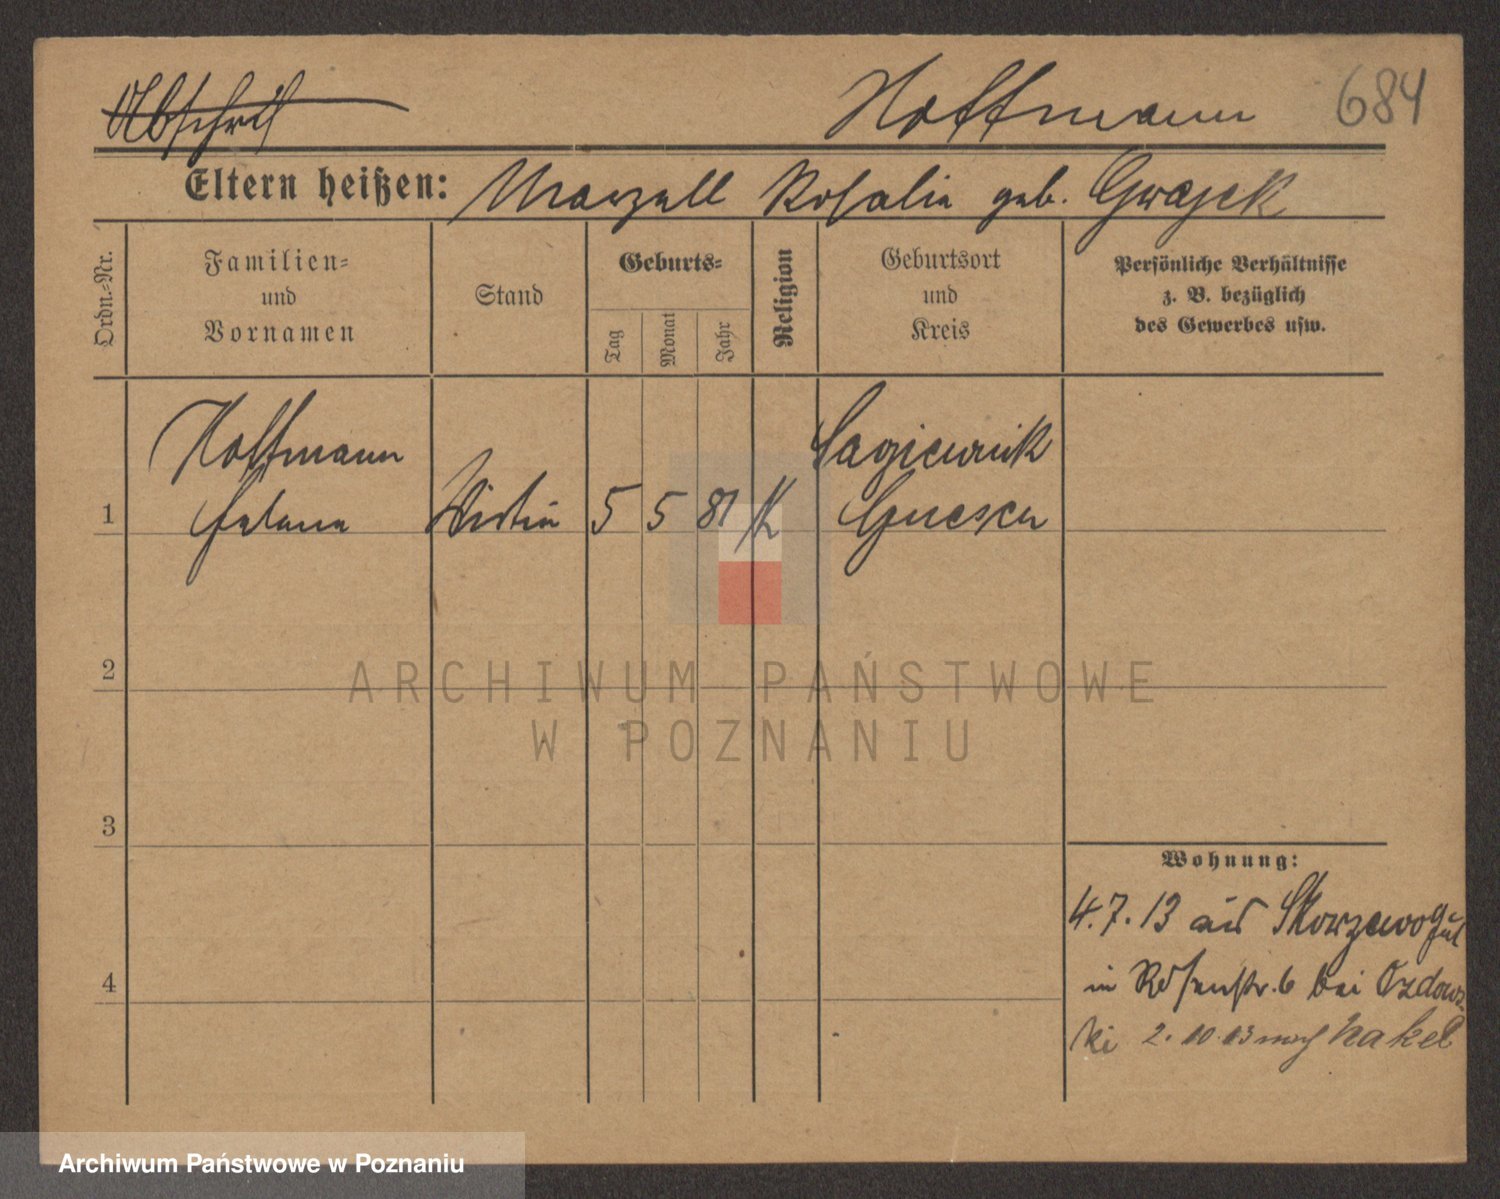 Abschrift
Hoffmann 684
Eltern heißen: Marzell Rosalie geb. Gwajek
Ordn.-Nr.
Familien=
und
Vornamen
Stand
Geburts=
Tag
Monat
Jahr
Religion
Geburtsort
und
Kreis
Persönliche Verhältnisse
z. B. bezüglich
des Gewerbes usw.
Hoffmann Lagiewnik
1 Helene Wirtin 5 5 81 K Gnesen
2
ARCHIWUM PAŃSTWOWE
W POZNANIU
3
Wohnung:
4.7.13 aus Skorzewo Gut
4 in Rosenstr. 6 bei Ozdows
ki 2.10.13 nach Nakel
Archiwum Państwowe w Poznaniu